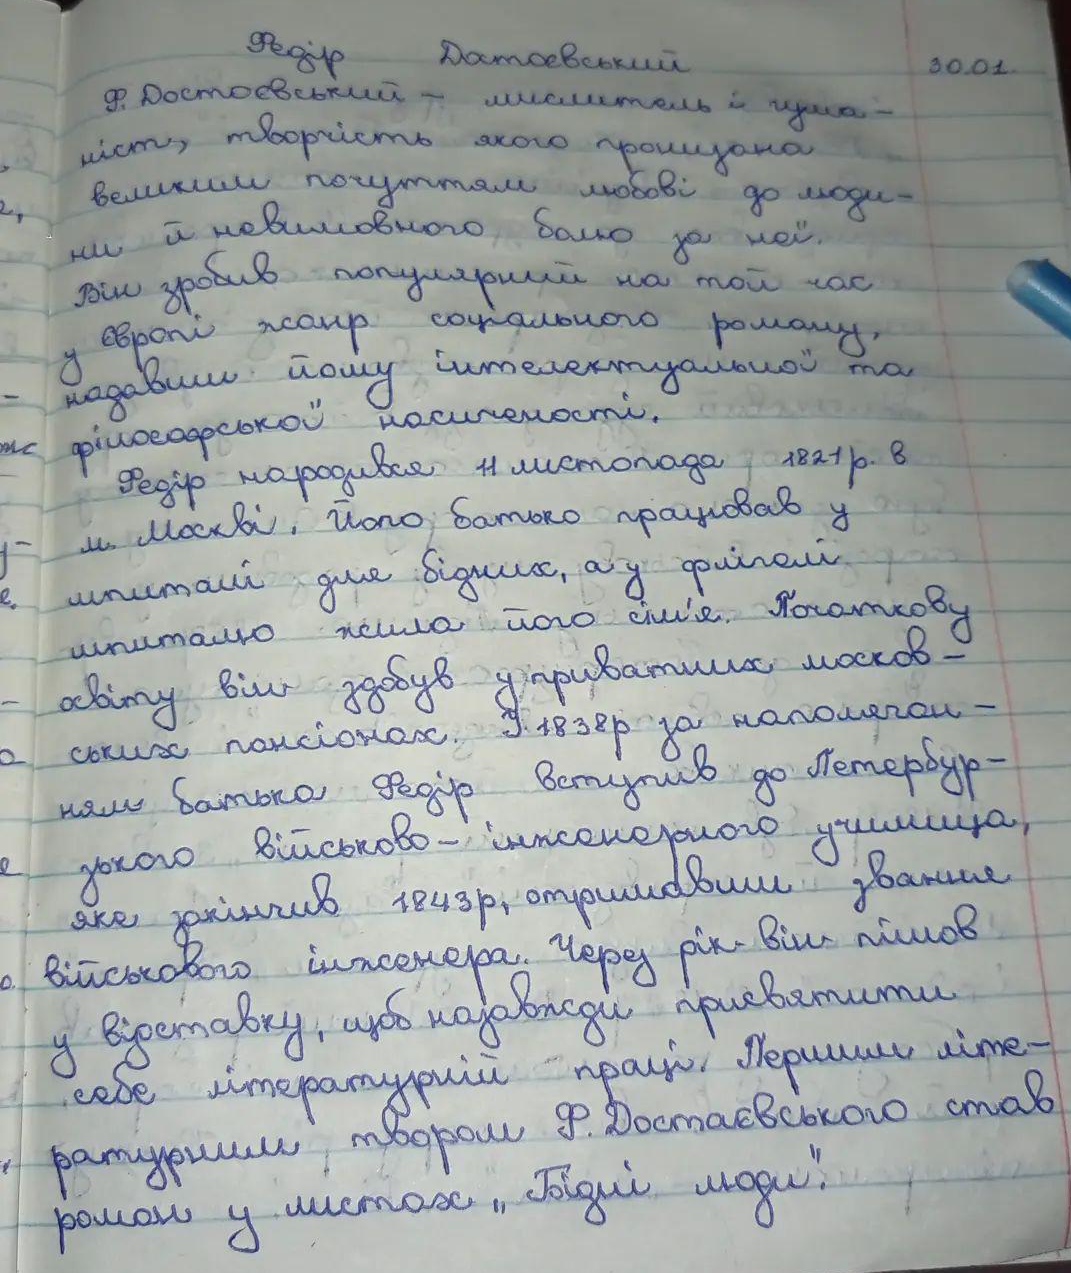 Федір Достоєвський 30.01.
Ф. Достоєвський – мислитель і гума-
ніст, творчість якого пронизана
великим почуттям любові до люди-
ни й невимовного болю за неї.
Він зробив популярний на той час
у Європі жанр соціального роману,
надавши йому інтелектуальної та
філософської насиченості.
Федір народився 11 листопада 1821р. в
м. Москві. Його батько працював у
шпиталі для бідних, а у флігелі
шпиталю жила його сім'я. Початкову
освіту він здобув у приватних москов-
ських пансіонах. У 1838р за наполяган-
ням батька Федір вступив до Петербур-
зького військово-інженерного училища,
яке закінчив 1843р, отримавши звання
військового інженера. Через рік він пішов
у відставку, щоб назавжди присвятити
себе літературній праці. Першим літе-
ратурним твором Ф. Достаєвського став
роман у листах „Бідні люди".